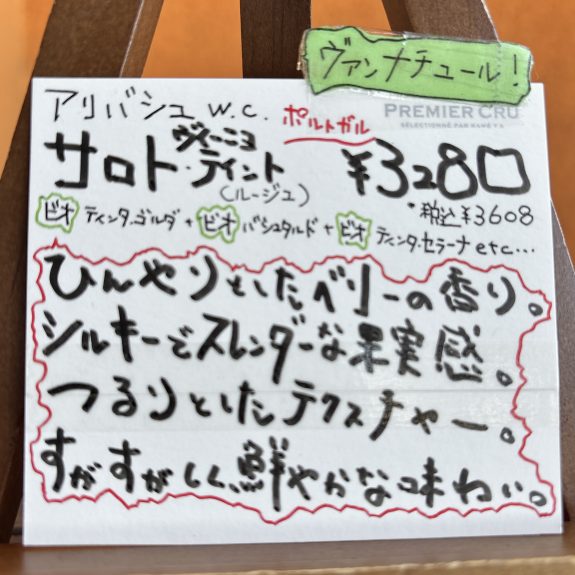 ヴァンナチュール!
アリバシュ W.C.
ポルトガル
PREMIER CRU
サロト・ヴィーニョ・ティント
(ルージュ)
¥3280
*税込¥3608
ビオ ティンタ・ゴルダ + ビオ バシュタルド + ビオ ティンタ・セラーナ etc...
ひんやりといたベリーの香り。
シルキーでスレンダーな果実感。
つるりといたテクスチャー。
すがすがしく、鮮やかな味わい。